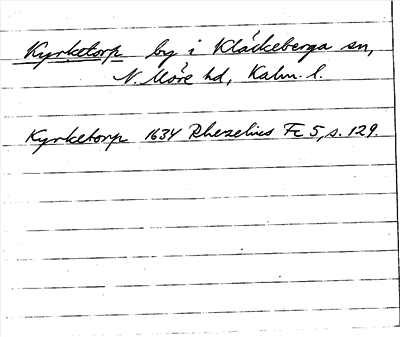 Kyrketorp by i Kläckeberga sn,
N. Möre hd, Kalm. l.
Kyrketorp 1634 Rhezelius Fc 5, s. 129.